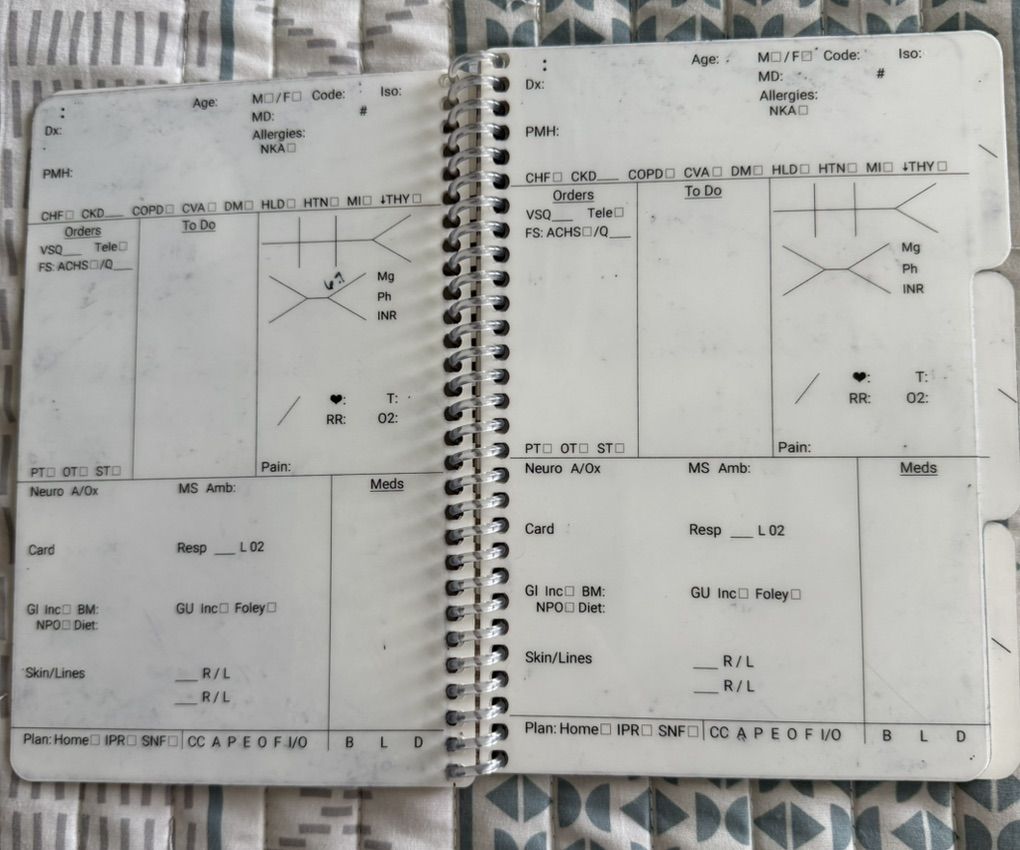 :
Age: M☐/F☐ Code: Iso:
MD: #
Dx: Allergies:
NKA☐
PMH:
CHF☐ CKD___ COPD☐ CVA☐ DM☐ HLD☐ HTN☐ MI☐ ↓THY☐
Orders
VSQ___ Tele☐
FS: ACHS☐/Q___
PT☐ OT☐ ST☐
To Do
Mg
Ph
INR
❤: T:
/ RR: O2:
Pain:
Neuro A/Ox MS Amb:
Card Resp ___ L 02
GI Inc☐ BM: GU Inc☐ Foley☐
NPO☐ Diet:
Skin/Lines ___ R / L
___ R / L
Meds
Plan: Home☐ IPR☐ SNF☐ CC A P E O F I/O B L D
:
Age: M☐/F☐ Code: Iso:
Dx: MD: #
Allergies:
NKA☐
PMH:
CHF☐ CKD___ COPD☐ CVA☐ DM☐ HLD☐ HTN☐ MI☐ ↓THY☐
Orders
VSQ___ Tele☐
FS: ACHS☐/Q___
PT☐ OT☐ ST☐
To Do
Mg
Ph
INR
❤: T:
/ RR: O2:
Pain:
Neuro A/Ox MS Amb:
Card Resp ___ L 02
GI Inc☐ BM: GU Inc☐ Foley☐
NPO☐ Diet:
Skin/Lines ___ R / L
___ R / L
Meds
Plan: Home☐ IPR☐ SNF☐ CC A P E O F I/O B L D